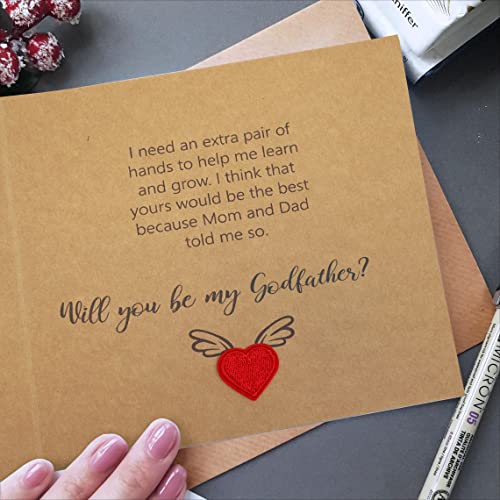 niffer
I need an extra pair of
hands to help me learn
and grow. I think that
yours would be the best
because Mom and Dad
told me so.
Will you be my Godfather?
MICRON 05